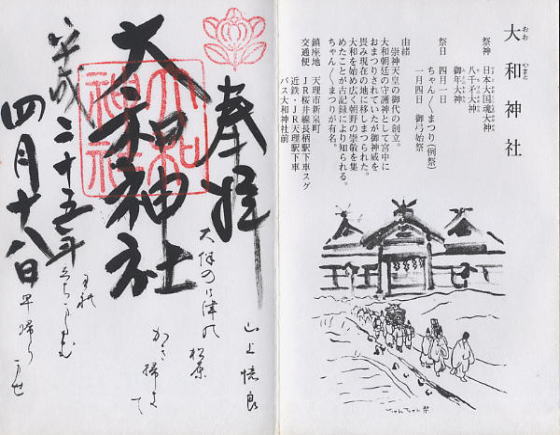 大和神社
おお やまと
祭神 日本大国魂大神
八千矛大神
御年大神
祭日 四月一日 ちゃん〱まつり(例祭)
一月四日 御弓始祭
由緒
崇神天皇の御代の創立。
大和朝廷の守護神として宮中に
おまつりされていたが御神威を
畏み現在の地に移しまつられた。
大和を始め広く朝野の崇敬を集
めたことが古記録により知られる。
ちゃん〱まつりが有名。
鎮座地 天理市新泉町
交通便 JR桜井線長柄駅下車スグ
近鉄・JR天理駅下車
バス大和神社前
ちゃんちゃん祭
奉拝
大和神社
大和神社
平成二十五年
四月十八日
山上憶良
大伴の御津の
松原
かき掃きて
早帰りませ